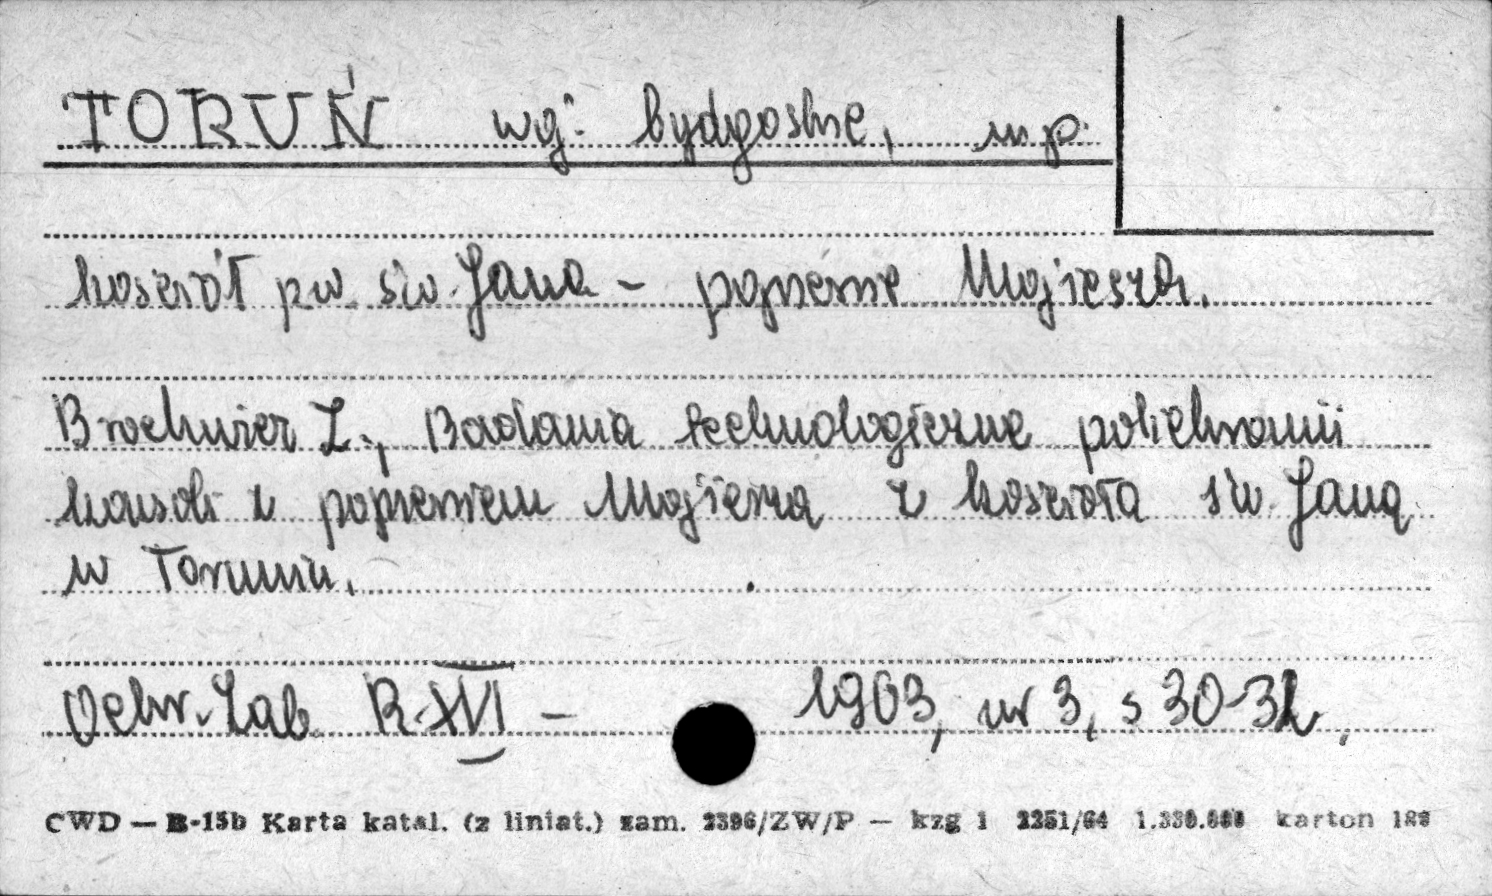 TORUŃ woj. bydgoskie, m.p.
kościół pw. św. Jana – popiersie Mojżesza.
Brochwicz Z., Badania technologiczne polichromii
konsoli z popiersiem Mojżesza z kościoła św. Jana
w Toruniu.
Ochr. Zab. R. XVI – 1963, nr 3, s 30-32.
CWD — B-15b Karta katal. (z liniat.) zam. 2396/ZW/P — kzg 1 2251/64 karton